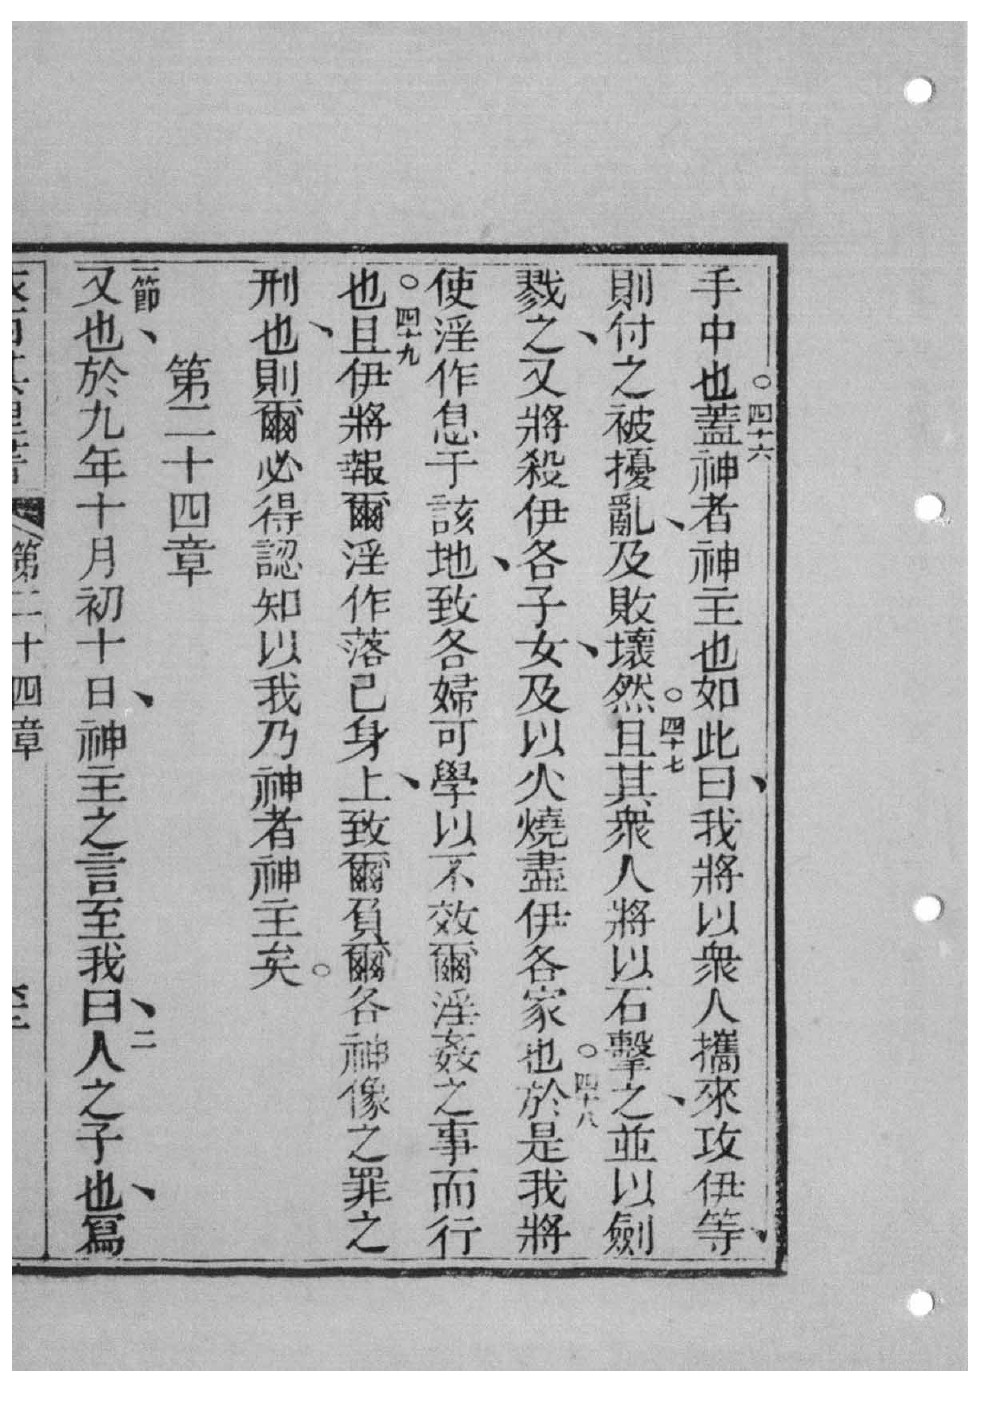 手中也○四十六蓋神者神主也如此曰、我將以衆人攜來攻伊等、
則付之被擾亂、及敗壞○四十七然且其衆人將以石擊之、並以劍
戮之、又將殺伊各子女、及以火燒盡伊各家也○四十八於是我將
使淫作息于該地、致各婦可學以不效爾淫姦之事而行
也○四十九且伊將報爾淫作落己身上、致爾負爾各神像之罪之
刑也、則爾必得認知以我乃神者神主矣○
第二十四章
一節又也、於九年十月初十日、神主之言至我曰、二人之子也、寫
第二十四章